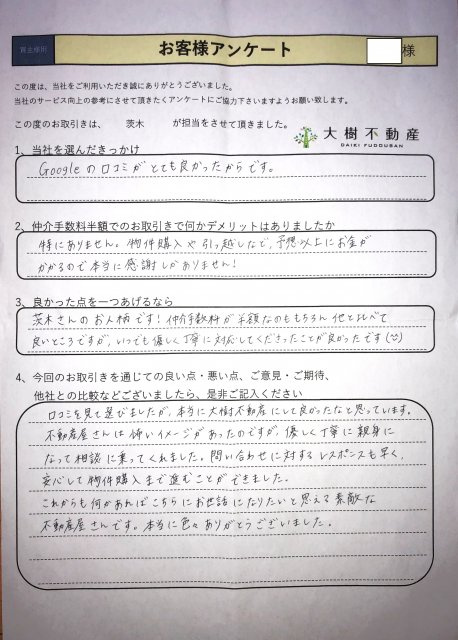 買主様用
お客様アンケート
様
この度は、当社をご利用いただき誠にありがとうございました。
当社のサービス向上の参考にさせて頂きたくアンケートにご協力下さいますようお願い致します。
この度のお取引きは、 茨木 が担当をさせて頂きました。
大樹不動産
DAIKI FUDOUSAN
1、当社を選んだきっかけ
Googleの口コミがとても良かったからです。
2、仲介手数料半額でのお取引きで何かデメリットはありましたか
特にありません。物件購入や引っ越しなど、予想以上にお金が
かかるので本当に感謝しかありません!
3、良かった点を一つあげるなら
茨木さんのお人柄です!仲介手数料が半額なのももちろん他と比べて
良いところですが、いつでも優しく丁寧に対応してくださったことが良かったです(☺)
4、今回のお取引を通じての良い点・悪い点、ご意見・ご期待、
他社との比較などございましたら、是非ご記入ください
口コミを見て選びましたが、本当に大樹不動産にして良かったなと思っています。
不動産屋さんは怖いイメージがあったのですが、優しく丁寧に親身に
なって相談に乗ってくれました。問い合わせに対するレスポンスも早く、
安心して物件購入まで進むことができました。
これからも何かあればこちらにお世話になりたいと思える素敵な
不動産屋さんです。本当に色々ありがとうございました。